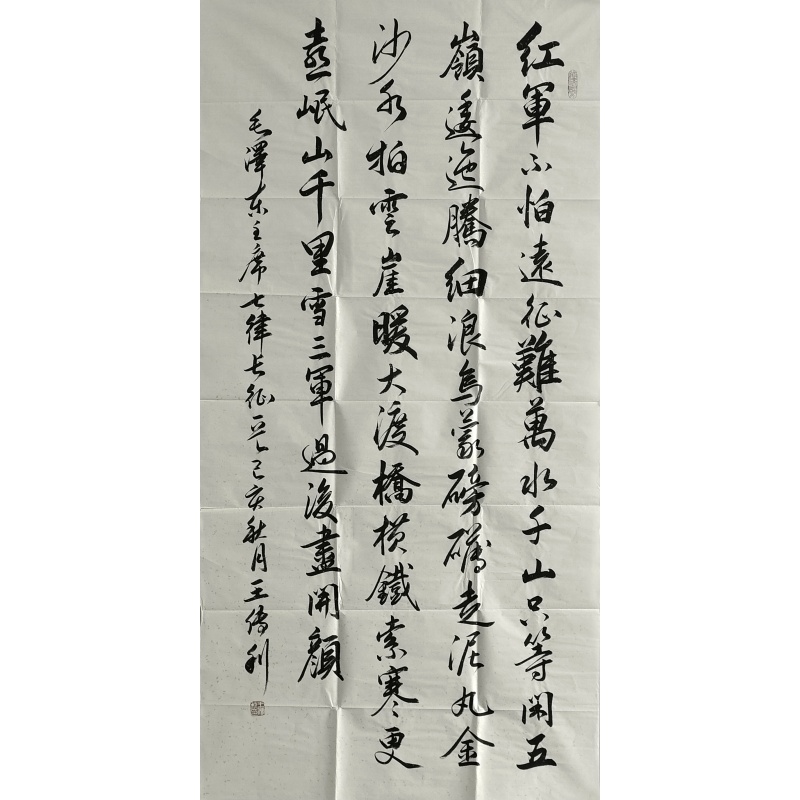 红軍不怕遠征難萬水千山只等閑五
嶺逶迤騰細浪烏蒙磅礴走泥丸金
沙水拍雲崖暖大渡橋横鐵索寒更
喜岷山千里雪三軍過後盡開顔
毛澤东主席七律长征己亥秋月王傳利